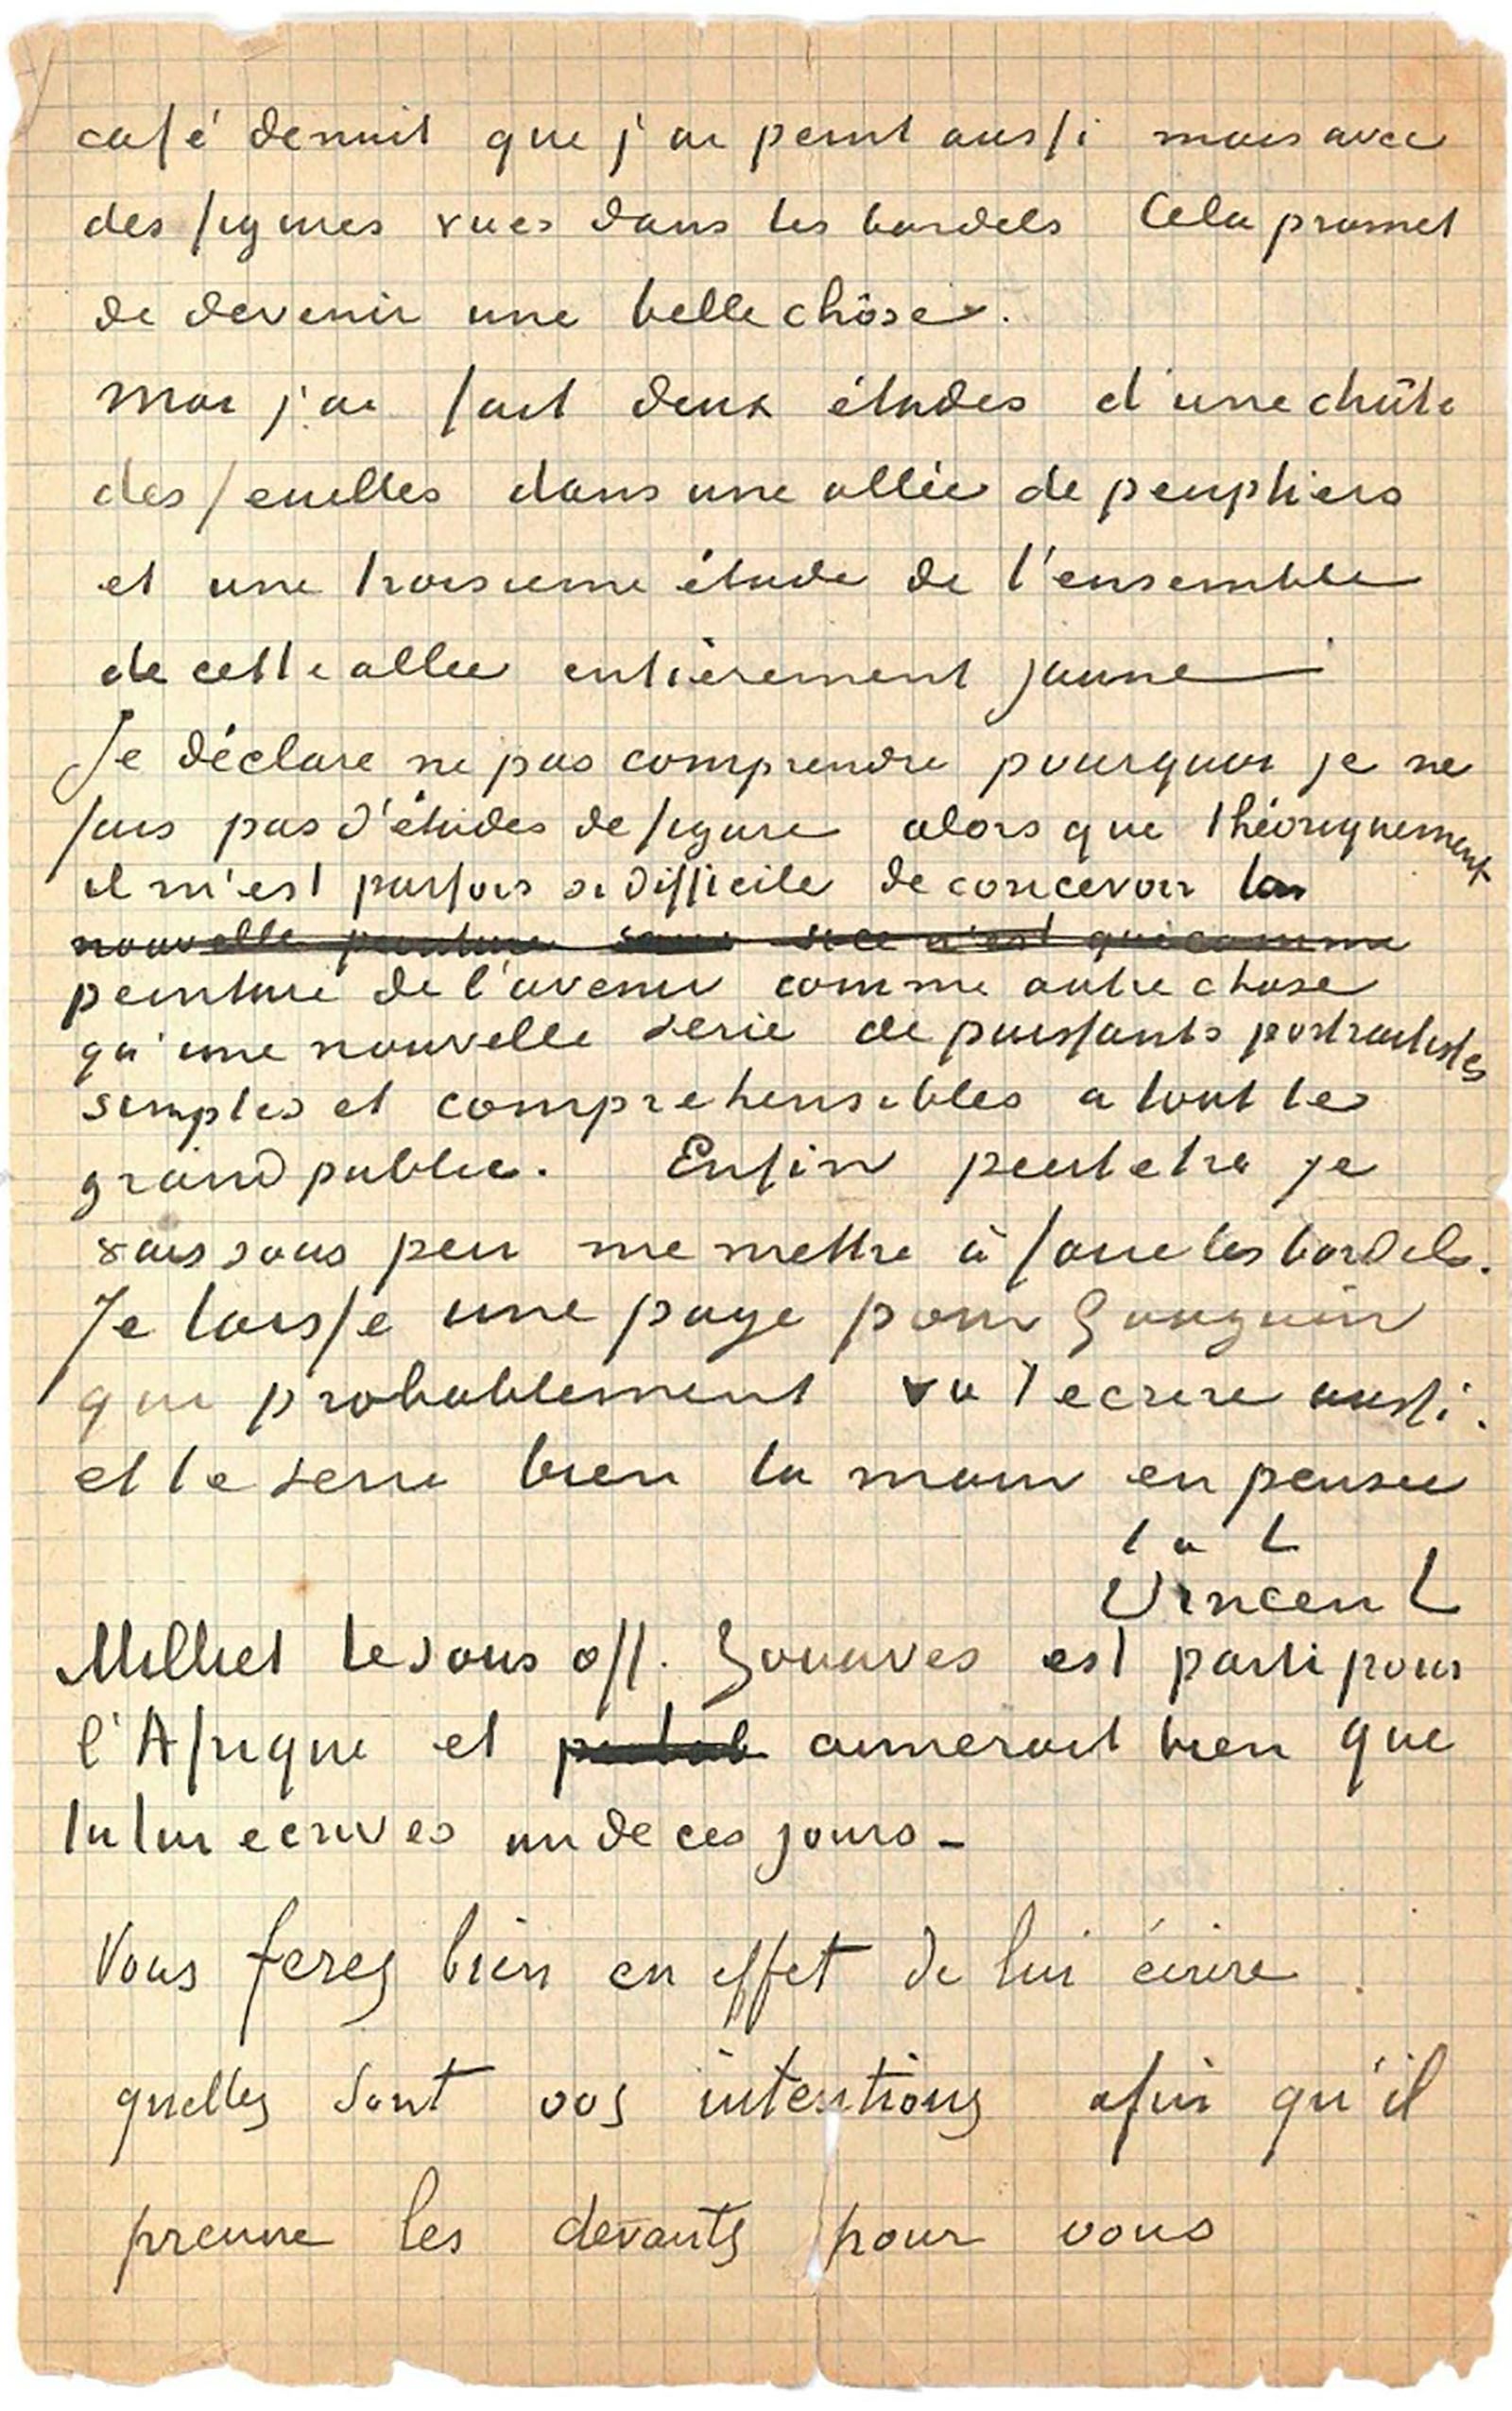 café de nuit que j'ai peint aussi mais avec
des figures vues dans les bordels Cela promet
de devenir une belle chôse.
Moi j'ai fait deux études d'une chûte
des feuilles dans une allée de peupliers
et une troisieme étude de l'ensemble
de cette allee entièrement jaune
Je déclare ne pas comprendre pourquoi je ne
fais pas d'études de figure alors que théoriquement
il m'est parfois si difficile de concevoir la
nouvelle peinture si ce n'est que comme
peinture de l'avenir comme autre chose
qu'une nouvelle serie de puissants portraitistes
simples et comprehensibles a tout le
grand public. Enfin peut etre je
vais sous peu me mettre à faire les bordels.
Je laisse une page pour Gauguin
qui probablement va t'ecrire aussi.
et te serre bien la main en pensee
t à t
Vincent
Milliet le sous off. Zouaves est parti pour
l'Afrique et aimerait bien que
tu lui ecrives un de ces jours –
Vous ferez bien en effet de lui écrire
quelles sont vos intentions afin qu'il
prenne les devants pour vous